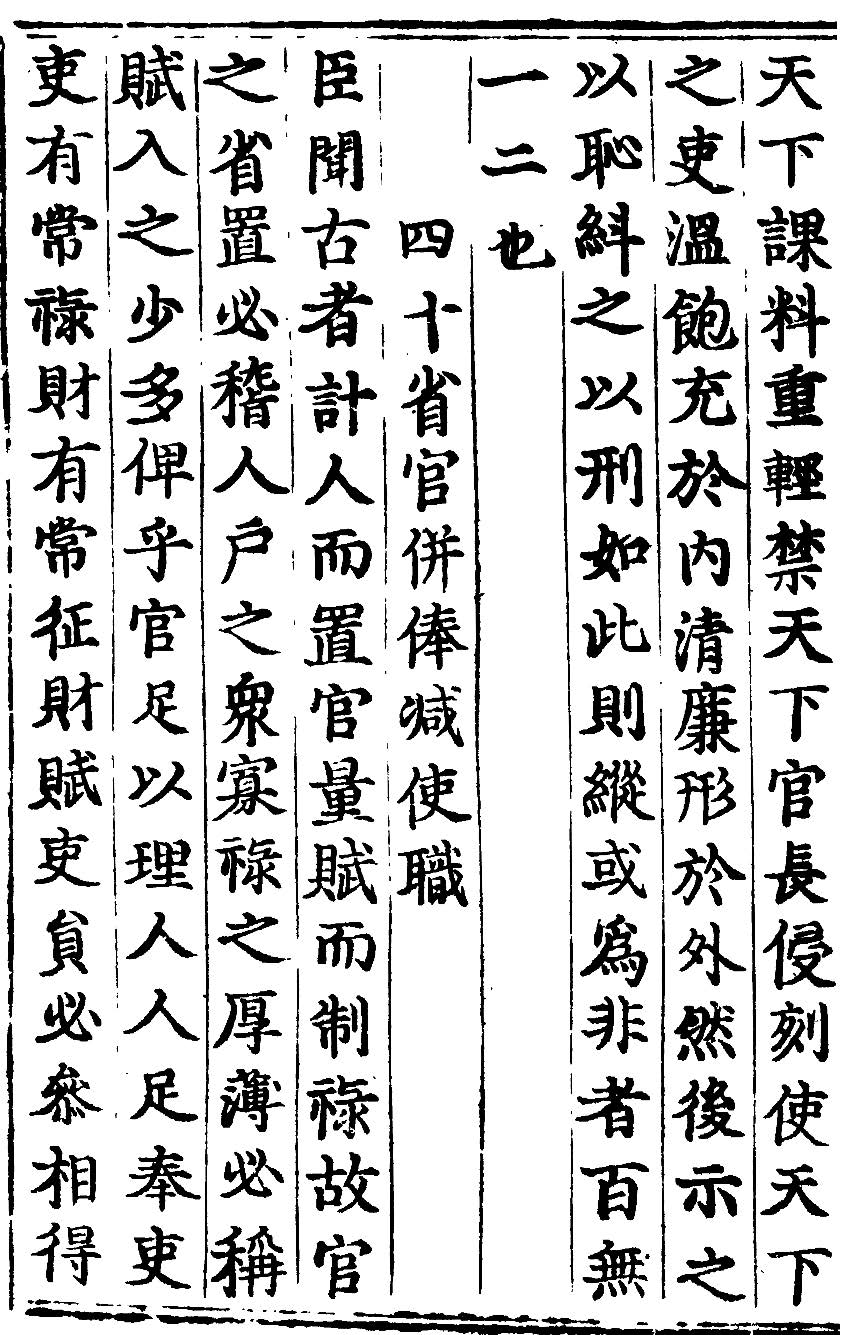 天下課料重輕禁天下官長侵刻使天下
之吏溫飽充於內清廉形於外然後示之
以恥糾之以刑如此則縱或爲非者百無
一二也
四十省官併俸減使職
臣聞古者計人而置官量賦而制祿故官
之省置必稽人戶之衆寡祿之厚薄必稱
賦入之少多俾乎官足以理人人足奉吏
吏有常祿財有常征財賦吏員必叅相得